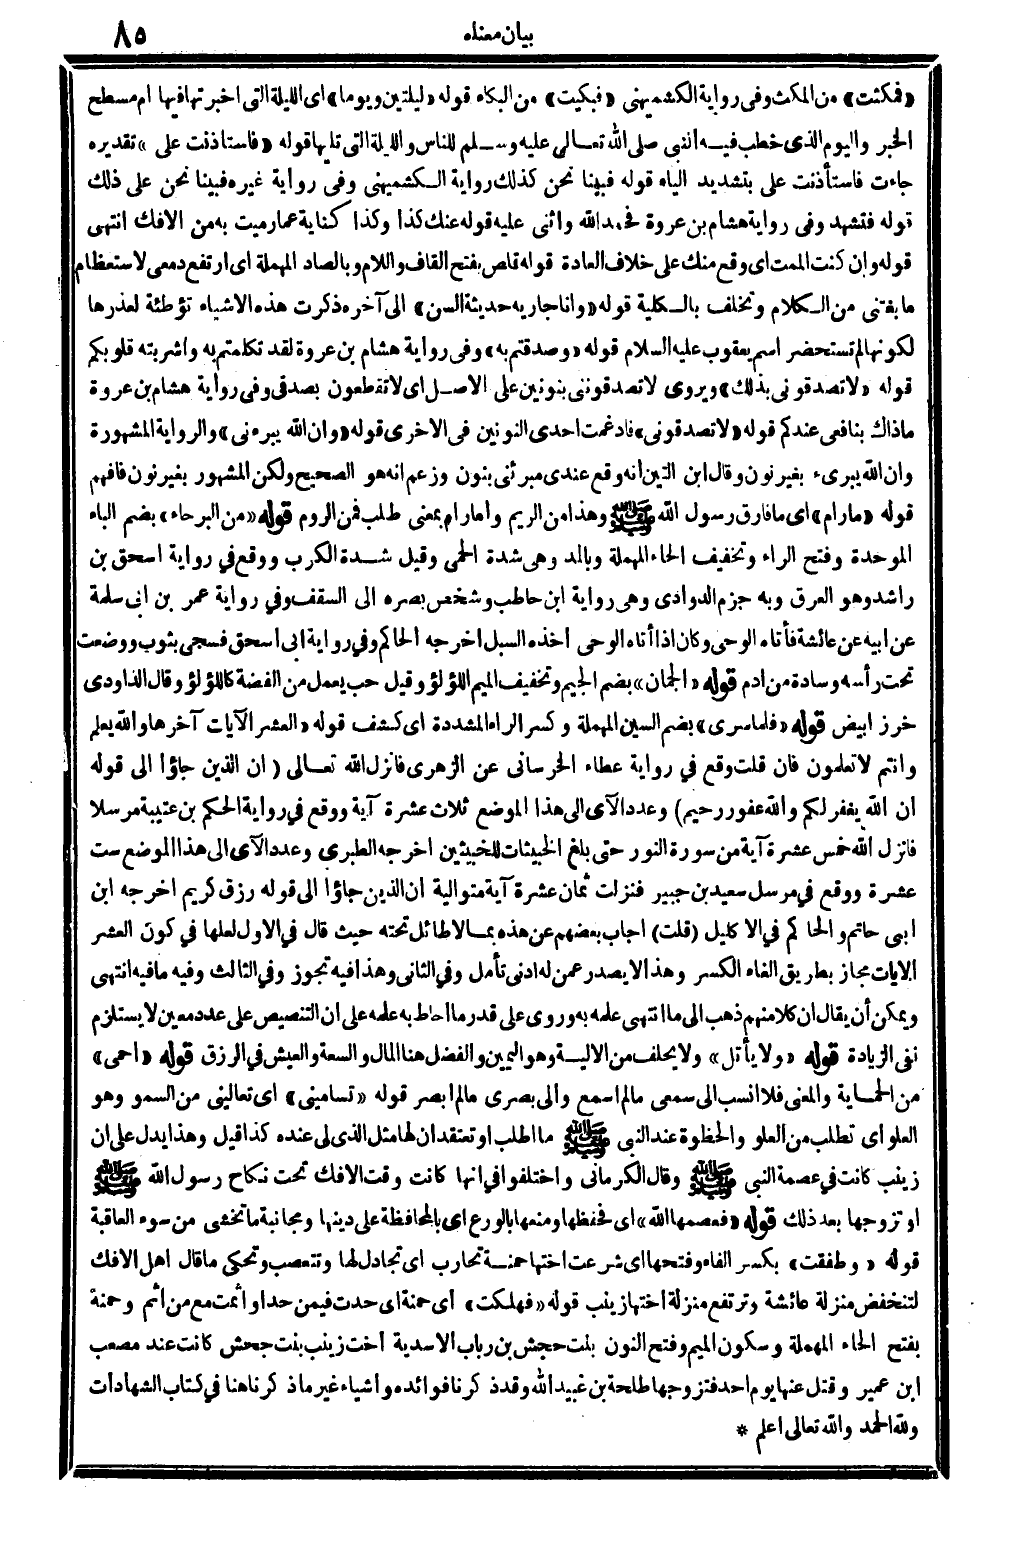 بيان معناه ٨٥
«فمكثت» من المكث وفي رواية الكشميهني «فبكيت» من البكاء قوله «ليلتين ويوما» اى الليلة التى اخبرتها فيها ام مسطح
الخبر واليوم الذى خطب فيــه النبى صلى الله تعــالى عليه وســلم للناس والليلة التى تليها قوله «فاستاذنت على» تقديره
جاءت فاستأذنت على بتشديد الياء قوله فبينا نحن كذلك رواية الـكشميهنى وفى رواية غيره فبينا نحن على ذلك
قوله فتشهد وفى رواية هشام بن عروة فحمد الله واثنى عليه قوله عنك كذا وكذا كناية عمارميت به من الافك انتهى
قوله وان كنت الممت اى وقع منك على خلاف العادة قوله قلص بفتح القاف واللام وبالصاد المهملة اى ارتفع دمعى لاستعظام
ما بغتنى من الـكلام وتخلف بالـكلية قوله «وانا جاريه حديثة السن» الى آخره ذكرت هذه الاشياء توطئة لعذرها
لكونها لم تستحضر اسم يعقوب عليه السلام قوله «وصدقتم به» وفى رواية هشام بن عروة لقد تكلمتم به واشربته قلوبكم
قوله «لا تصدقونى بذلك» ويروى لا تصدقوننى بنونين على الاصــل اى لا تقطعون بصدقى وفى رواية هشام بن عروة
ماذاك بنافعى عندكم قوله «لا تصدقونى» فادغمت احدى النونين فى الاخرى قوله «وان الله يبرءنى» والرواية المشهورة
وان الله يبرىء بغير نون وقال ابن التين انه وقع عندى مبرئنى بنون وزعم انه هو الصحيح ولكن المشهور بغير نون فافهم
قوله «مارام» اى ما فارق رسول الله ﷺ وهذا من الريم واما رام بمعنى طلب فمن الروم قوله «من البرحاء» بضم الباء
الموحدة وفتح الراء وتخفيف الحاء المهملة وبالمد وهى شدة الحمى وقيل شــدة الكرب ووقع في رواية اسحق بن
راشد وهو العرق وبه جزم الدوادى وهى رواية ابن حاطب وشخص بصره الى السقف وفي رواية عمر بن ابى سلمة
عن ابيه عن عائشة فأتاه الوحى وكان اذا أتاه الوحى أخذه السبل اخرجه الحاكم وفي رواية ابى اسحق فسجى بثوب ووضعت
تحت رأسه وسادة من ادم قوله «الجمان» بضم الجيم وتخفيف الميم اللؤلؤ وقيل حب يعمل من الفضة كاللؤلؤ وقال الداودى
خرز ابيض قوله «فلما سرى» بضم السين المهملة وكسر الراء المشددة اى كشف قوله «العشر الآيات آخرها والله يعلم
وانتم لا تعلمون فان قلت وقع في رواية عطاء الخرسانى عن الزهرى فانزل الله تعــالى (ان الذين جاؤا الى قوله
ان الله يغفر لكم والله غفور رحيم) وعدد الآى الى هذا الموضع ثلاث عشرة آية ووقع في رواية الحكم بن عتيبة مرسلا
فانزل الله خمس عشرة آية من سورة النور حتى بلغ الخبيثات للخبيثين اخرجه الطبرى وعدد الآى الى هذا الموضع ست
عشرة ووقع في مرسل سعيد بن جبير فنزلت ثمان عشرة آية متوالية ان الذين جاؤا الى قوله رزق كريم اخرجه ابن
ابى حاتم والحاكم في الاكليل (قلت) اجاب بعضهم عن هذه بمــا لا طائل تحته حيث قال في الاول لعلها في كون العشر
الايات مجاز بطريق الغاء الكسر وهذا لا يصدر عمن له ادنى تأمل وفي الثانى وهذا فيه تجوز وفي الثالث وفيه ما فيه انتهى
ويمكن أن يقال ان كلا منهم ذهب الى ما انتهى علمه به وروى على قدر ما احاط به علمه على ان التنصيص على عدد معين لا يستلزم
نفى الزيادة قوله «ولا يأتل» ولا يحلف من الالية وهو اليمين والفضل هنا المال والسعة والعيش في الرزق قوله «احمى»
من الحمــاية والمعنى فلا انسب الى سمعى مالم اسمع والى بصرى مالم ابصر قوله «تسامينى» اى تعالينى من السمو وهو
العلو اى تطلب من العلو والحظوة عند النبى ﷺ ما اطلب او تعتقد ان لها مثل الذى لى عنده كذا قيل وهذا يدل على ان
زينب كانت في عصمة النبى ﷺ وقال الكرمانى واختلفوا في انها كانت وقت الافك تحت نكاح رسول الله ﷺ
او تزوجها بعد ذلك قوله «فعصمها الله» اى فحفظها ومنعها بالورع اى بالمحافظة على دينها ومجانبة ما تخشى من سوء العاقبة
قوله «وطفقت» بكسر الفاء وفتحها اى شرعت اختها حمنــة تحارب اى تجادل لها وتتعصب وتحكى ما قال اهل الافك
لتنخفض منزلة عائشة وترتفع منزلة اختها زينب قوله «فهلكت» اى حمنة اى حدت فيمن حد او اثمت مع من اثم وحمنة
بفتح الحاء المهملة وسكون الميم وفتح النون بنت حجش بن رباب الاسدية أخت زينب بنت جحش كانت عند مصعب
ابن عمير وقتل عنها يوم احد فتزوجها طلحة بن عبيد الله وقد ذكرنا فوائده واشياء غير ماذكرناهنا في كتاب الشهادات
ولله الحمد والله تعالى اعلم *